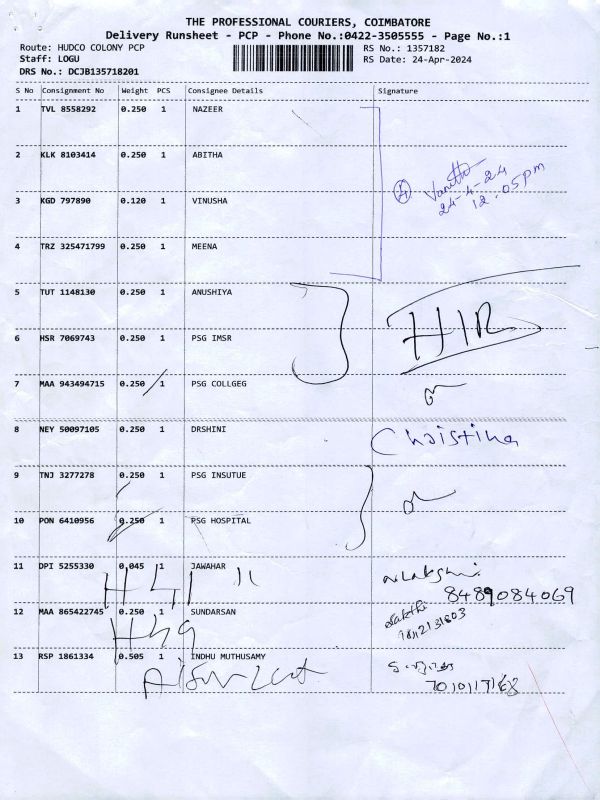 THE PROFESSIONAL COURIERS, COIMBATORE
Delivery Runsheet - PCP - Phone No.:0422-3505555 - Page No.:1
Route: HUDCO COLONY PCP
RS No.: 1357182
Staff: LOGU
RS Date: 24-Apr-2024
DRS No.: DCJB135718201
S No Consignment No Weight PCS Consignee Details Signature
1 TVL 8558292 0.250 1 NAZEER
2 KLK 8103414 0.250 1 ABITHA
4 Vanitha
24-4-24
12.05pm
3 KGD 797890 0.120 1 VINUSHA
4 TRZ 325471799 0.250 1 MEENA
5 TUT 1148130 0.250 1 ANUSHIYA
6 HSR 7069743 0.250 1 PSG IMSR
7 MAA 943494715 0.250 1 PSG COLLGEG
8 NEY 50097105 0.250 1 DRSHINI Christina
9 TNJ 3277278 0.250 1 PSG INSUTUE
10 PON 6410956 0.250 1 PSG HOSPITAL
11 DPI 5255330 0.045 1 JAWAHAR
8489084069
12 MAA 865422745 0.250 1 SUNDARSAN
H49
13 RSP 1861334 0.505 1 INDHU MUTHUSAMY